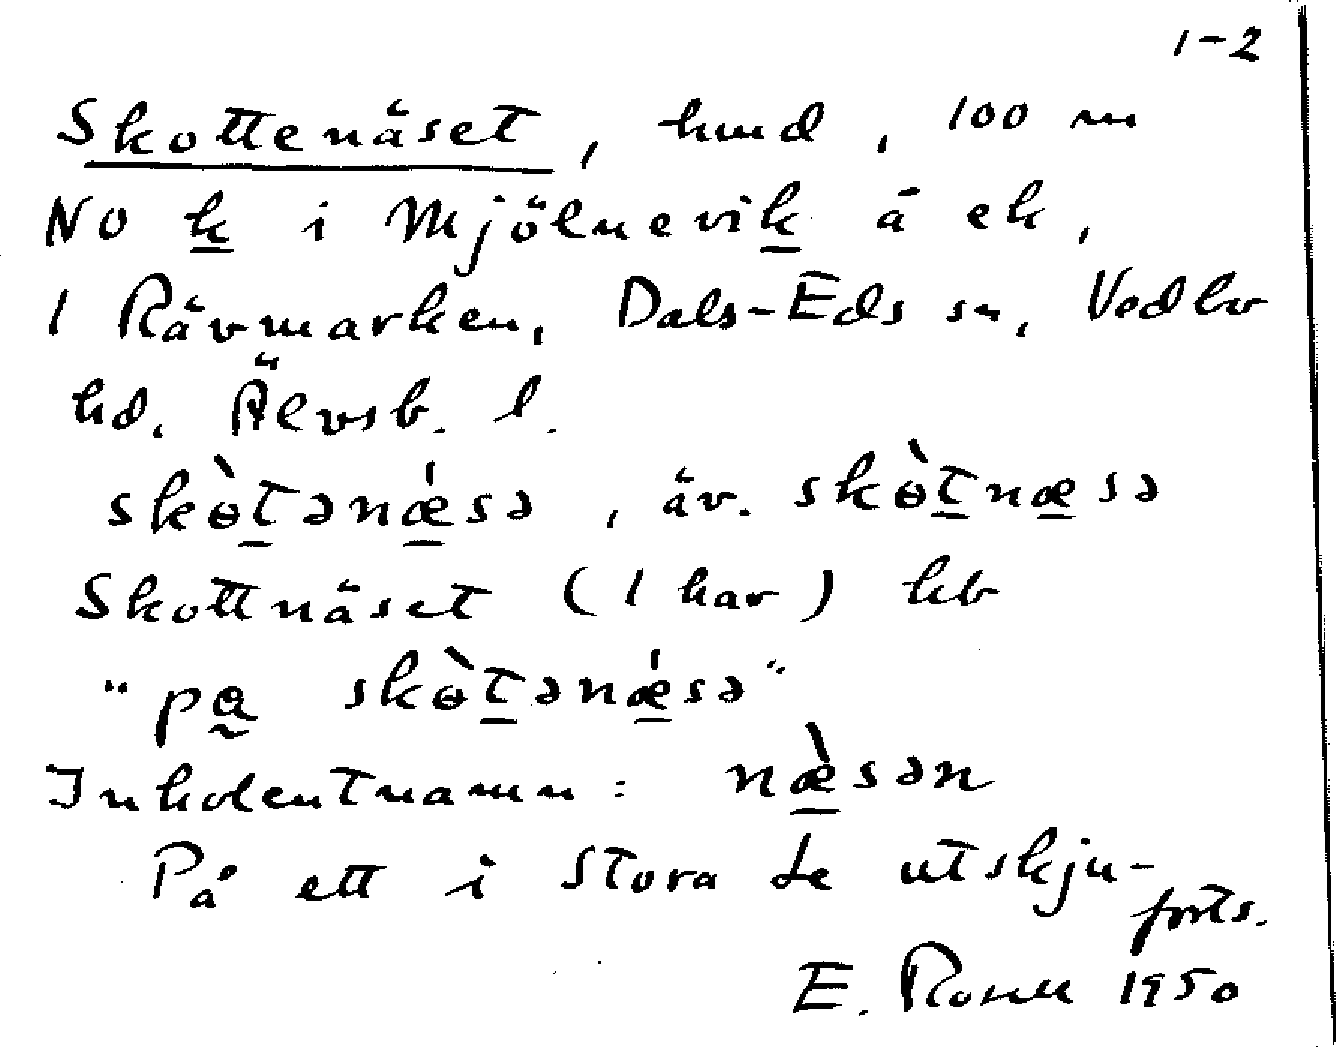 1-2
Skottenäset, hmd, 100 m
NO k i Mjölnevik å ek,
1 Rävmarken, Dals-Eds sn, Vedbo
hd. Älvsb. l.
skɵ̀tənǽsə, äv. skɵ̀tnæsə
Skottnäset (1 har) hb
"pa skɵ̀tənǽsə"
Inkolentnamn: næ̀sən
På ett i Stora Le utskju-
forts.
E. Rosell 1950